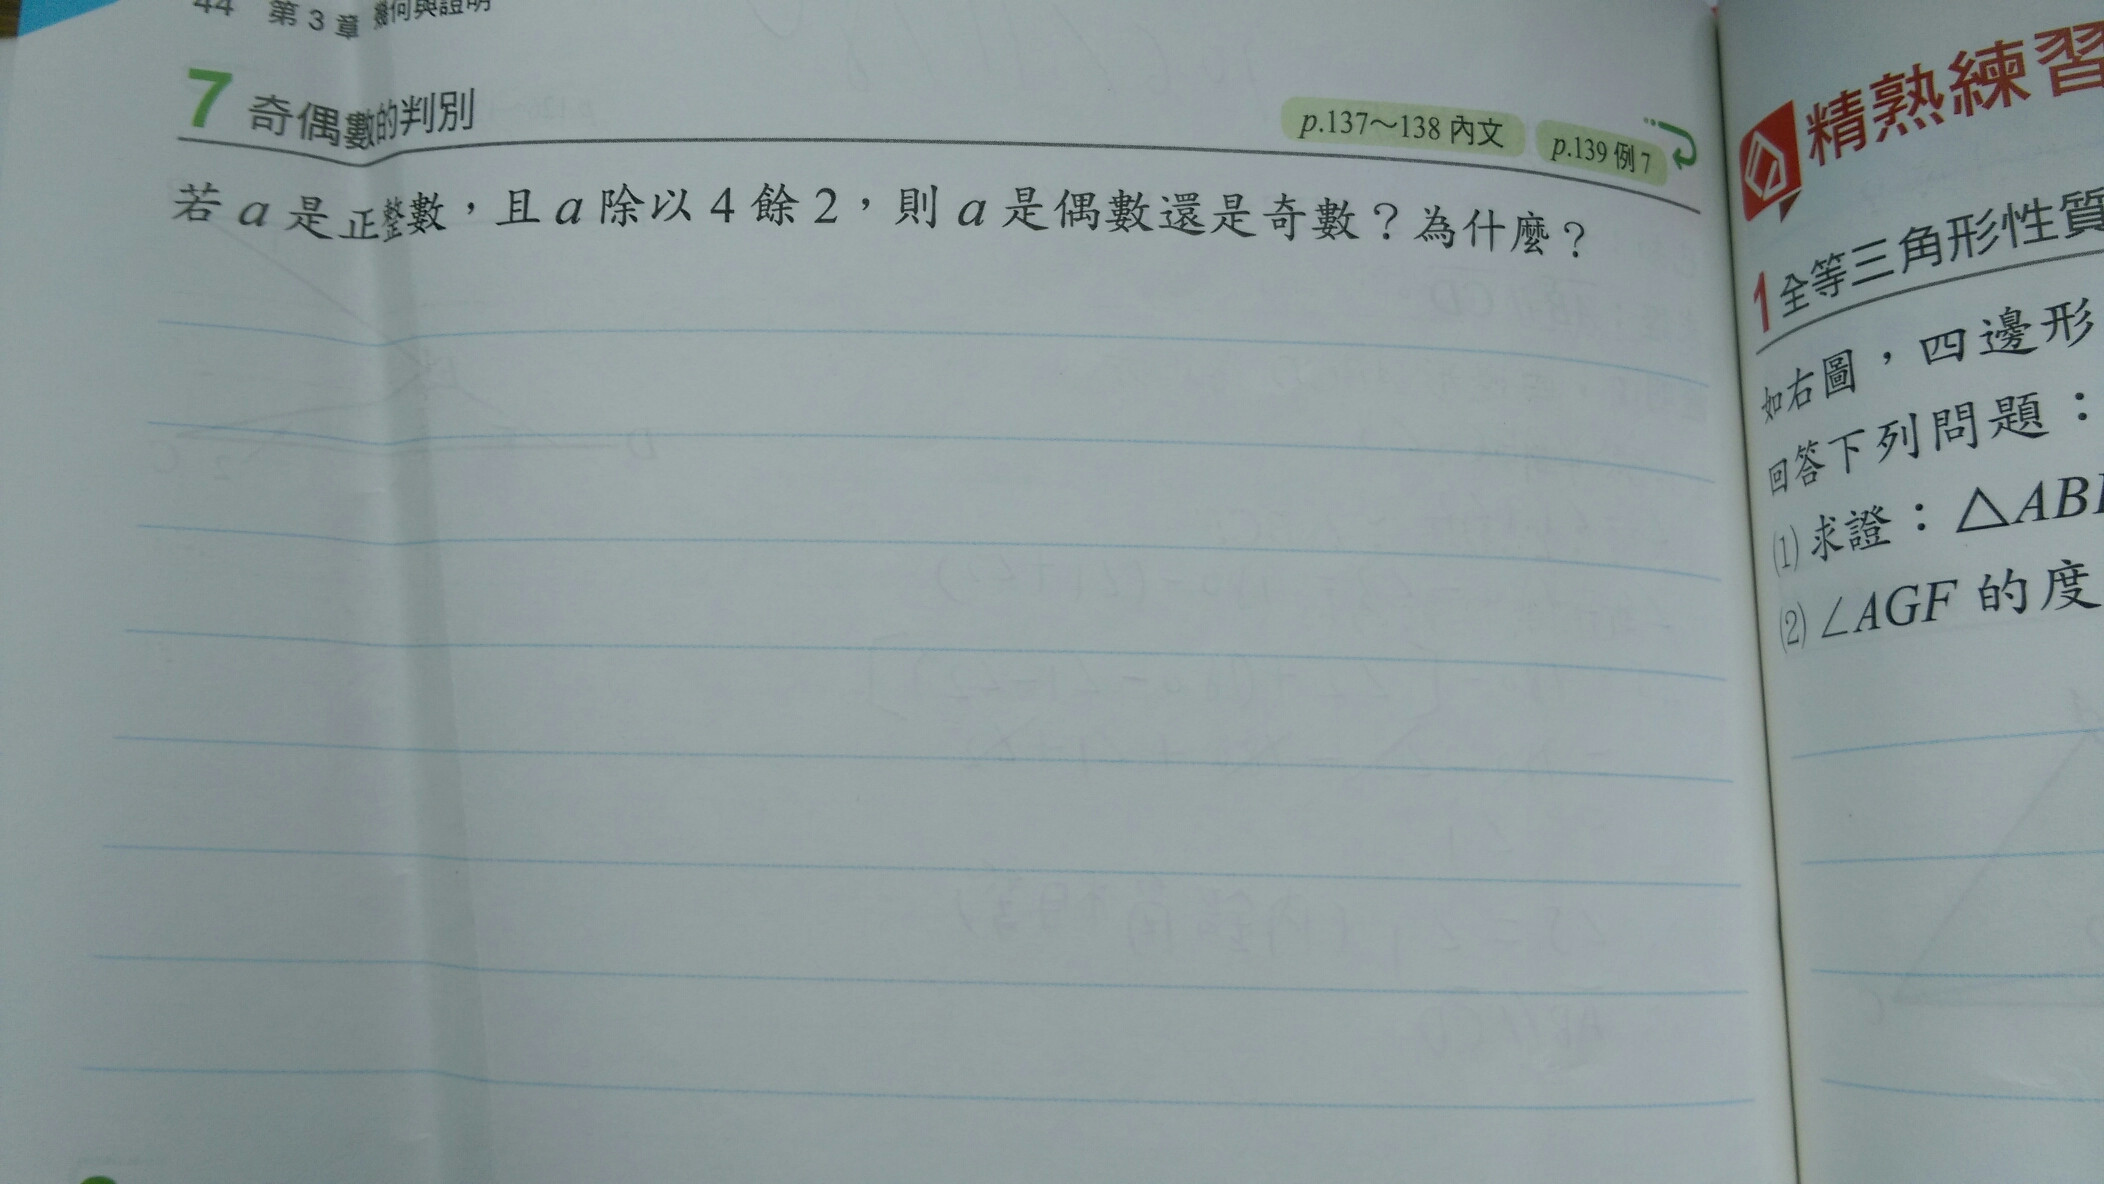 44 第3章 幾何與證明
7 奇偶數的判別
p.137～138 內文 p.139 例7
若 a 是正整數，且 a 除以 4 餘 2，則 a 是偶數還是奇數？為什麼？
精熟練習
1 全等三角形性質
如右圖，四邊形
回答下列問題：
(1) 求證：△AB
(2) ∠AGF 的度